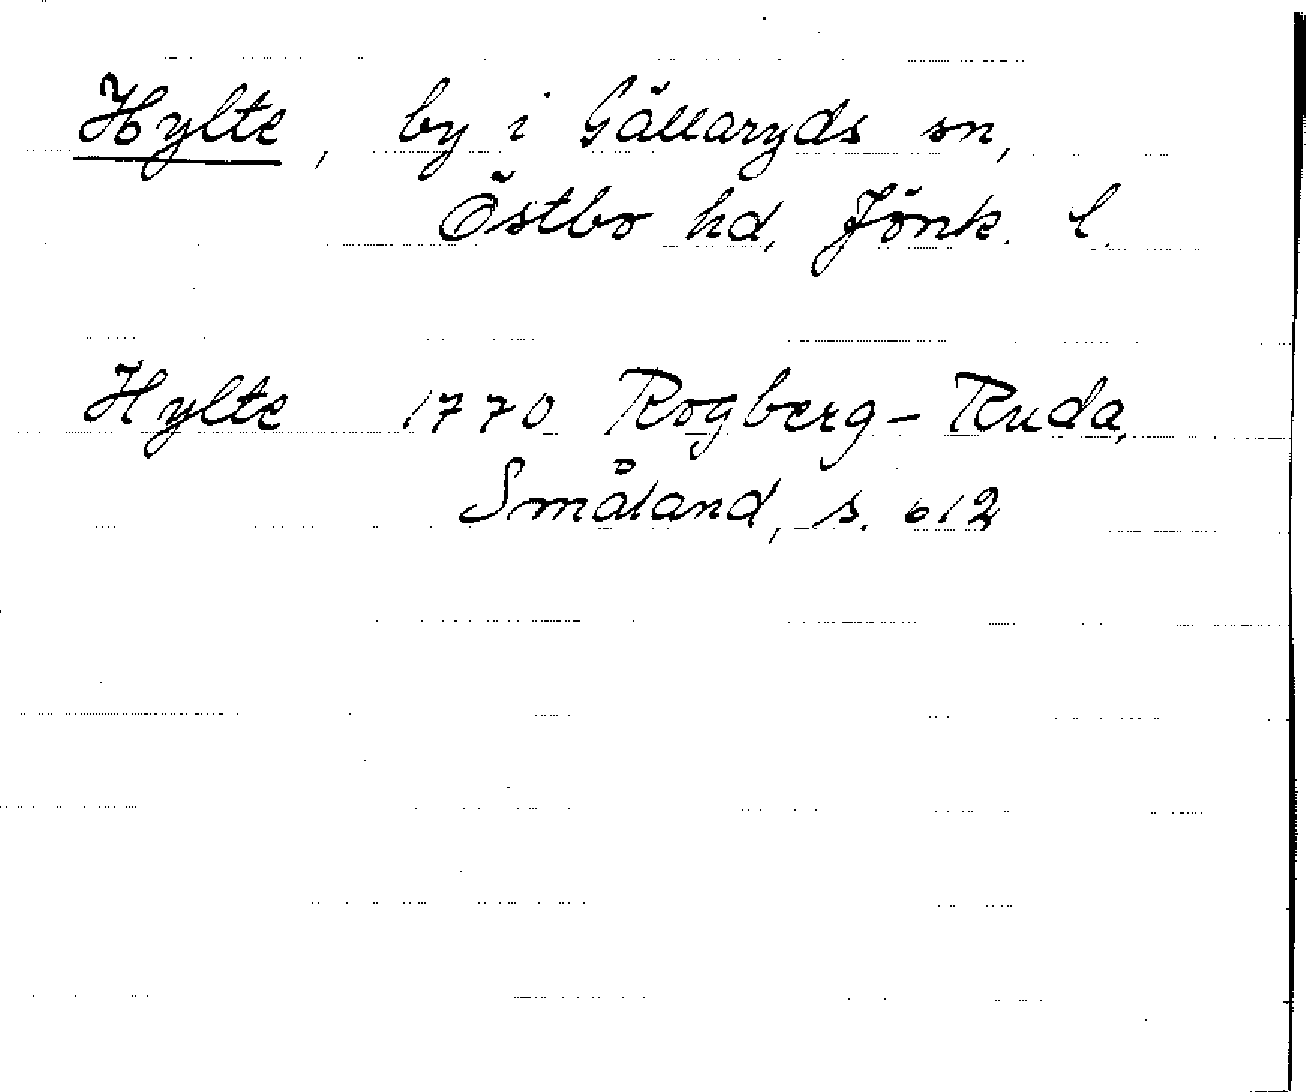 Hylte, by i Gällaryds sn,
Östbo hd, Jönk. l.
Hylte 1770 Rogberg-Ruda,
Småland, s. 612